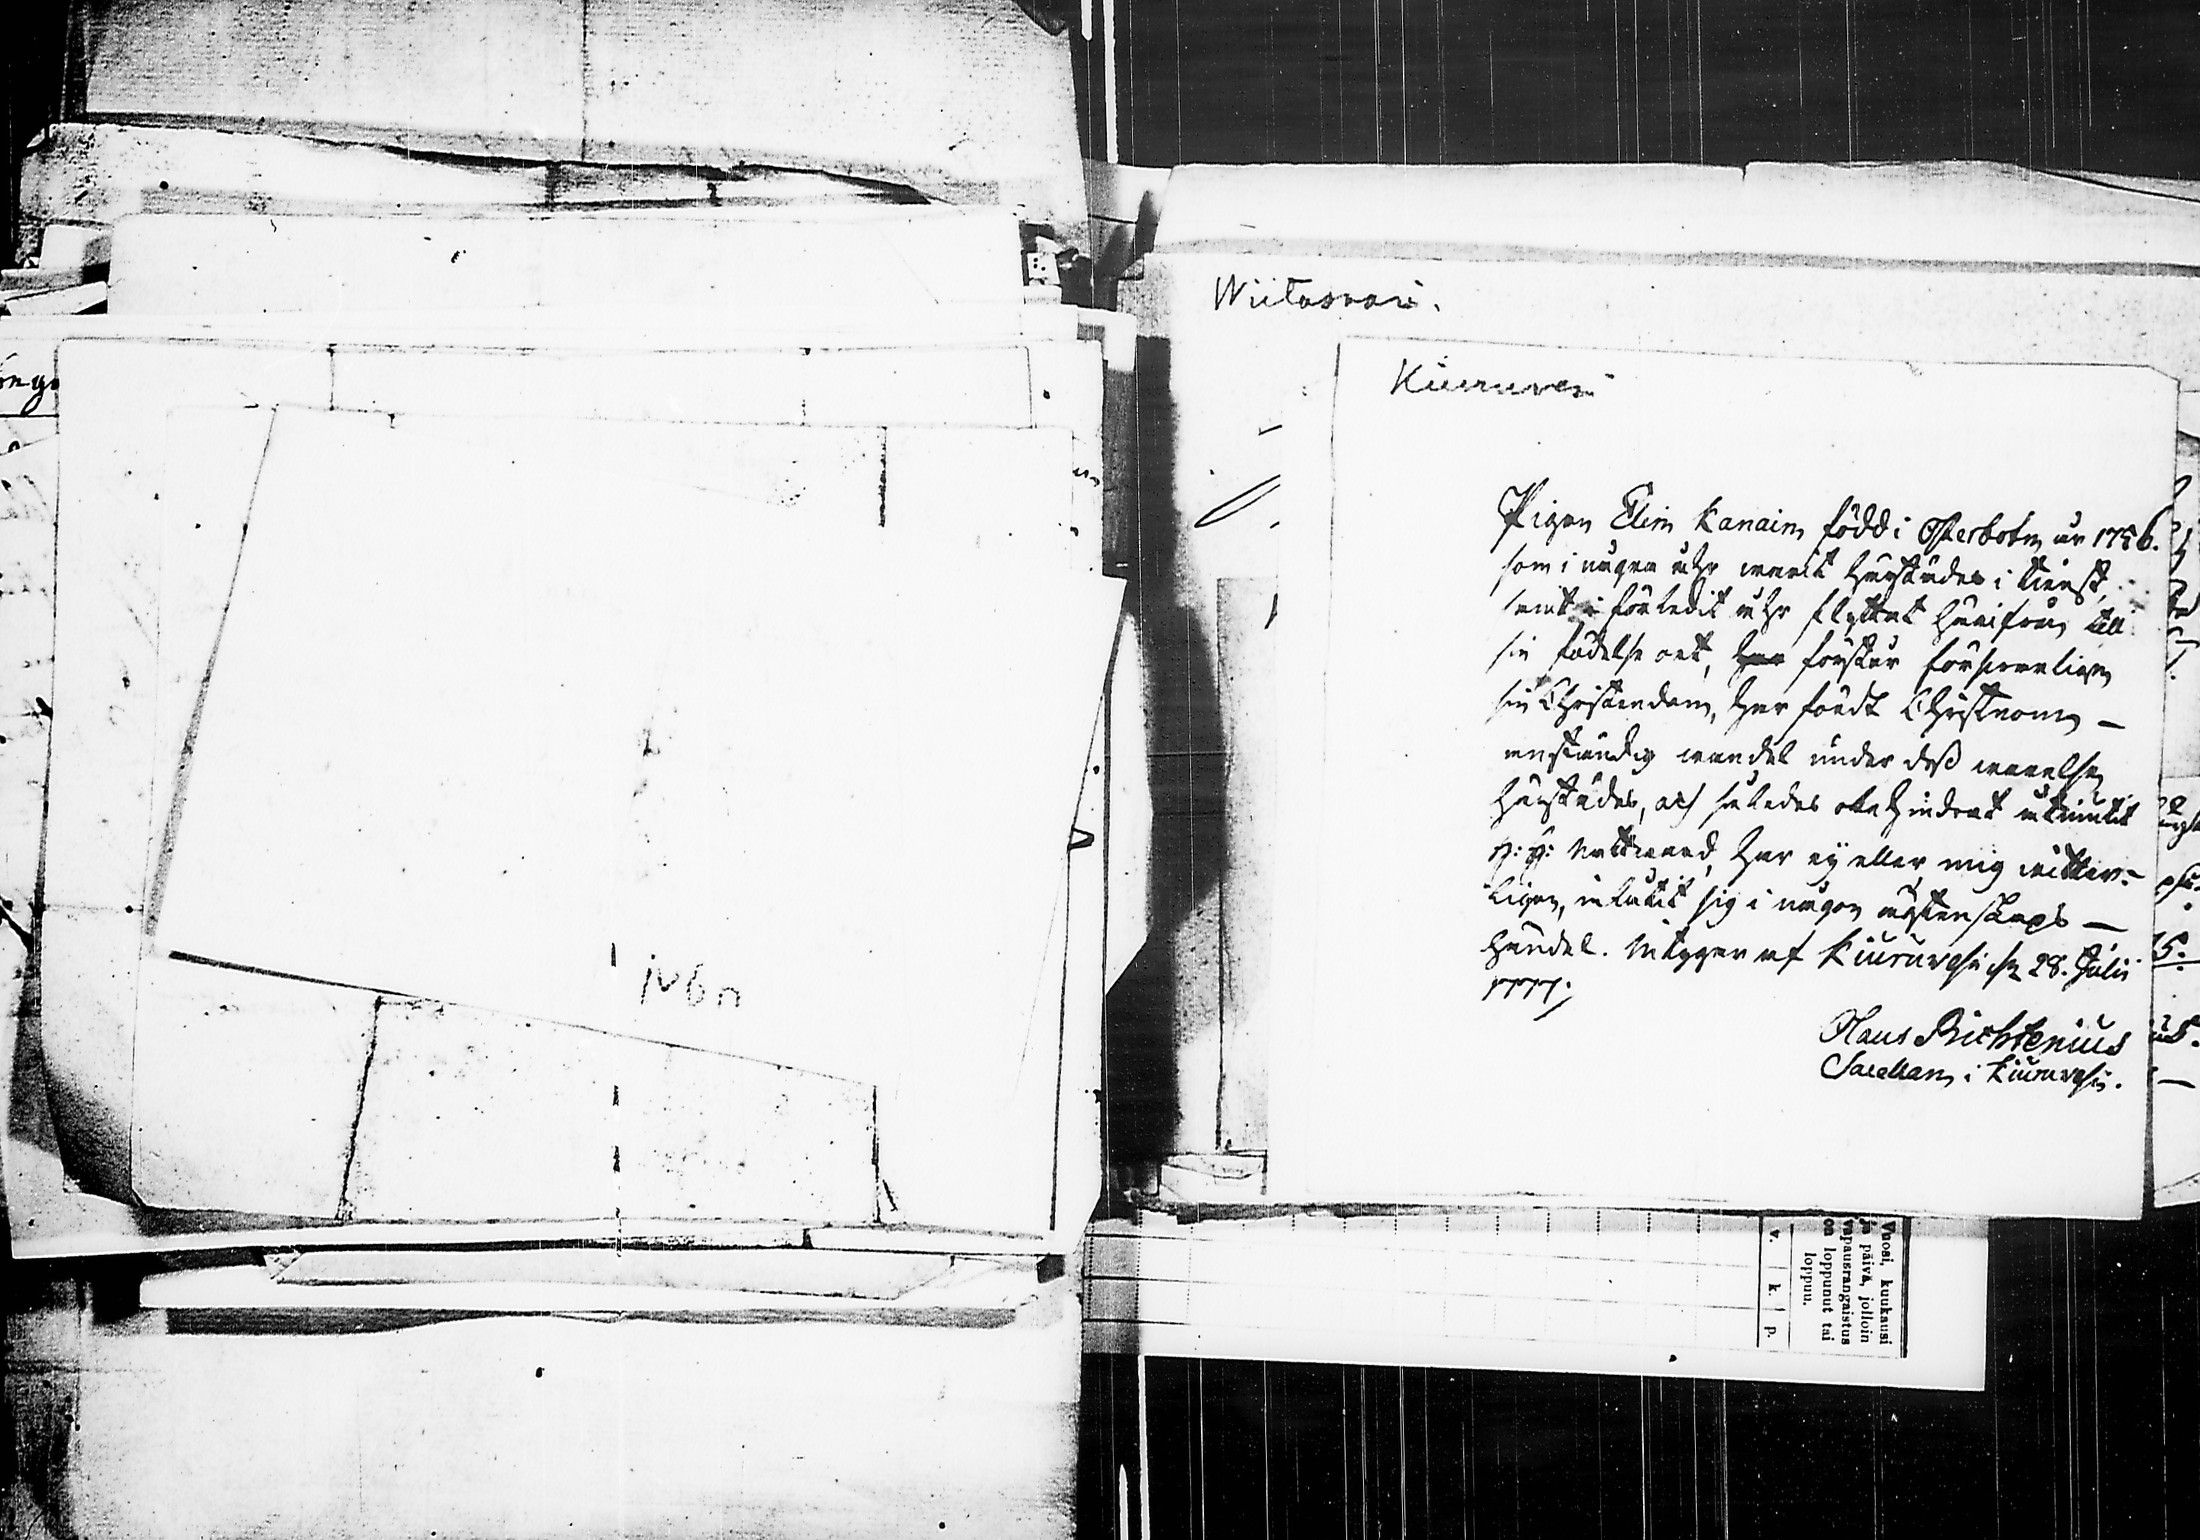 Wiitasaari.
Kiuruvesi
Pigan Elin Kanain, född i Österbotn år 1756.
som i några åhr warit härstädes i tienst,
samt i förledit åhr flyttat härifrån till
sin födelse ort, har förstår försvarligen
sin Christendom, har fördt Christeom, —
anständig wandel under dess warelse
härstädes, och således obehindrat åtniutit
H: H: Nattward, har ej eller, mig witter-
ligen, inlåtit sig i någon ägtenskaps —
handel. Intygar af Kiuruvesi den 28. Julii
1777;
Olaus Brichtenius
Sacellan, i Kiuruvesi.
Vuosi, kuukausi
ja päivä, jolloin
vapausrangaistus
on loppunut tai
loppuu.
v. k. p.